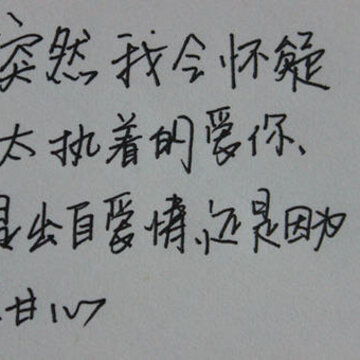 突然我会怀疑
太执着的爱你、
是出自爱情、还是因为
甘心